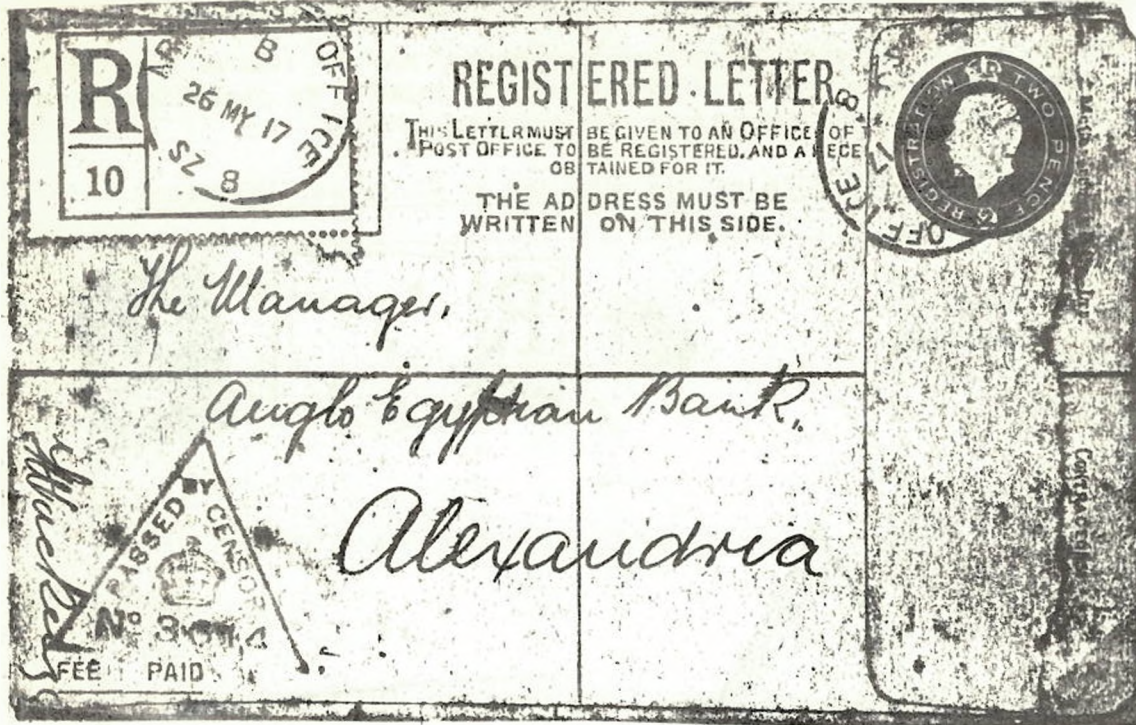 R
10
B OFFICE
26 MY 17
SZ 8
REGISTERED LETTER
THIS LETTER MUST BE GIVEN TO AN OFFICE OF
POST OFFICE TO BE REGISTERED, AND A RECE
OBTAINED FOR IT.
THE ADDRESS MUST BE
WRITTEN ON THIS SIDE.
REGISTRATION TWO PENCE
OFFICE
The Manager,
Anglo Egyptian Bank,
Alexandria
PASSED BY CENSOR
No
FEE PAID